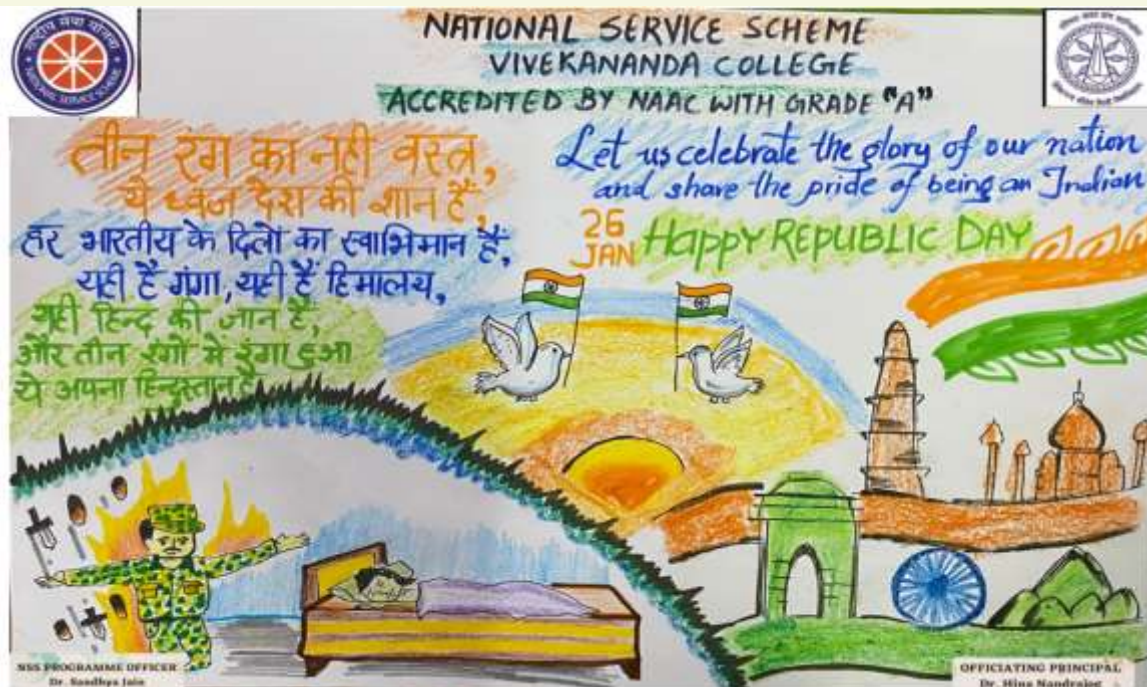 राष्ट्रीय सेवा योजना
NATIONAL SERVICE SCHEME
NATIONAL SERVICE SCHEME
VIVEKANANDA COLLEGE
ACCREDITED BY NAAC WITH GRADE "A"
तीन रंग का नही वस्त्र,
ये ध्वज देश की शान है,
हर भारतीय के दिलो का स्वाभिमान है,
यही है गंगा, यही है हिमालय,
यही हिन्द की जान है,
और तीन रंगों में रंगा हुआ
ये अपना हिन्दुस्तान है
Let us celebrate the glory of our nation
and share the pride of being an Indian
26
JAN
Happy REPUBLIC DAY
NSS PROGRAMME OFFICER
Dr. Sandhya Jain
OFFICIATING PRINCIPAL
Dr. Hina Nandrajog